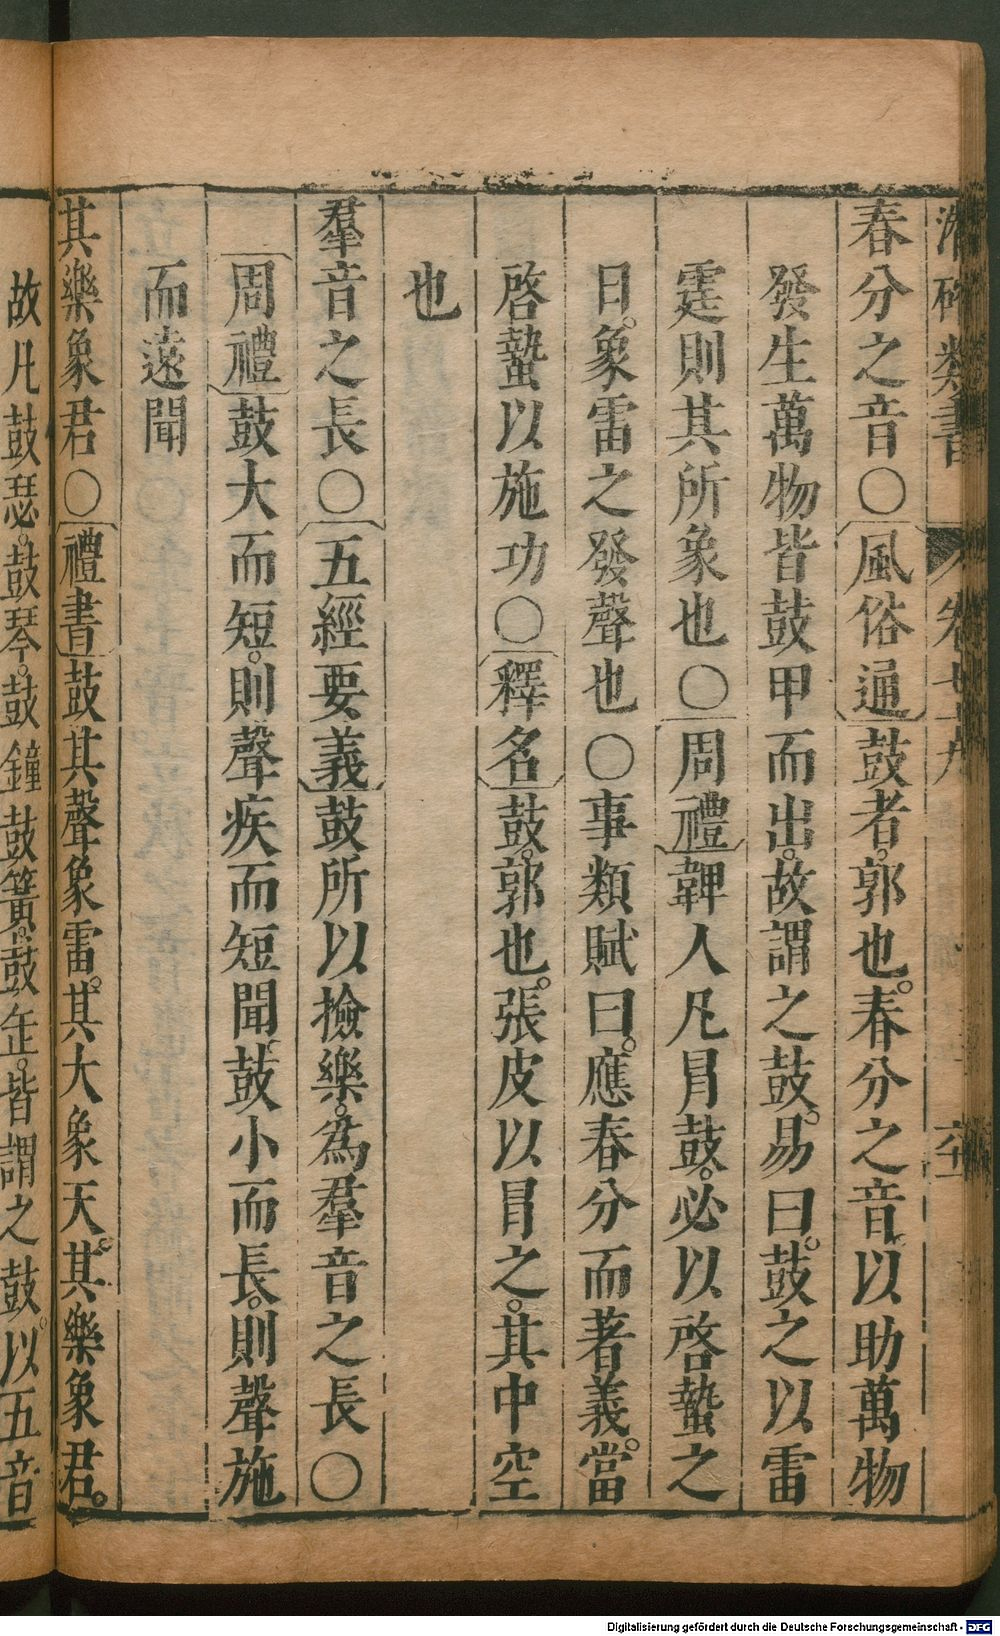 潛確類書 卷七十九
春分之音○風俗通鼓者郭也春分之音以助萬物
發生萬物皆鼓甲而出故謂之鼓易曰鼓之以雷
霆則其所象也○周禮韗人凡冐鼓必以啓蟄之
日象雷之發聲也○事類賦曰應春分而著義當
啓蟄以施功○釋名鼓郭也張皮以冐之其中空
也
羣音之長○五經要義鼓所以撿樂為羣音之長○
周禮鼓大而短則聲疾而短聞鼓小而長則聲施
而遠聞
其樂象君○禮書鼓其聲象雷其大象天其樂象君
故凡鼓瑟鼓琴鼓鐘鼓簧鼓缶皆謂之鼓以五音
Digitalisierung gefördert durch die Deutsche Forschungsgemeinschaft - DFG